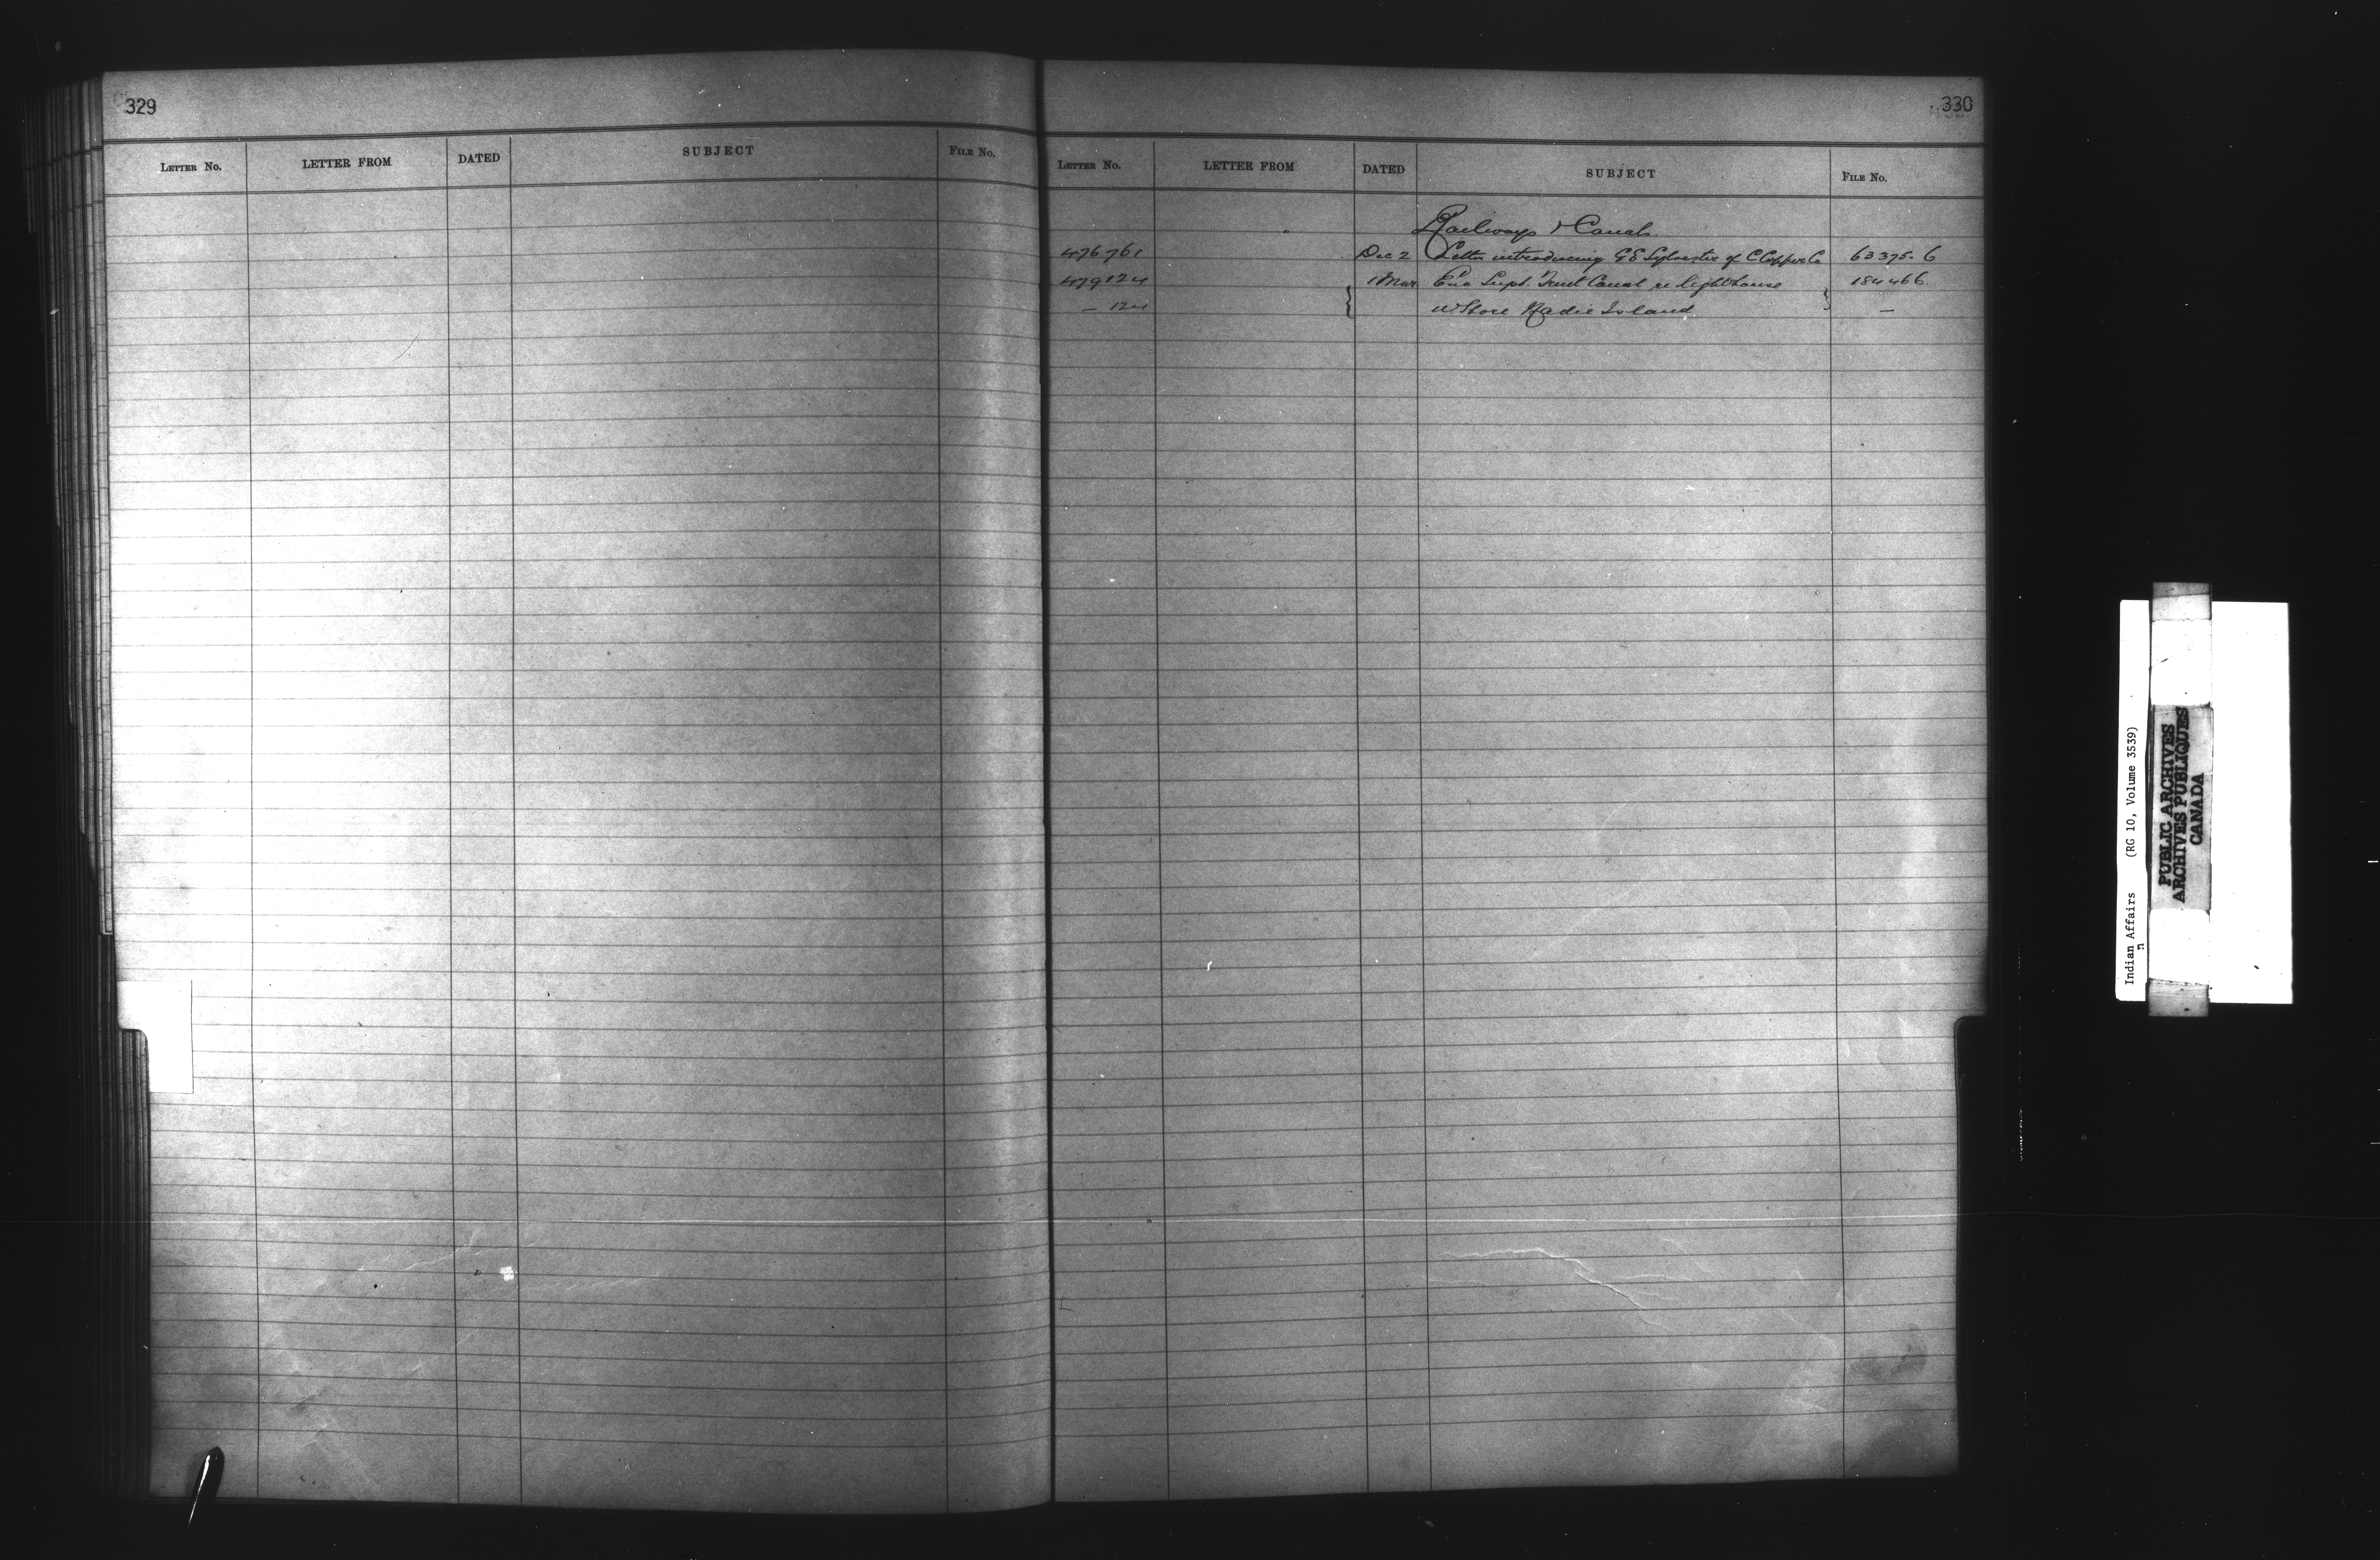 329
LETTER No. LETTER FROM DATED SUBJECT FILE No.
330
LETTER No. LETTER FROM DATED SUBJECT FILE No.
Railways & Canals
476761 Dec 2 Letter introducing G E Sylvester of C Copper Co 63375-6
479124 1 Mar Enc Supt. Trent Canal re lighthouse 184466
— 124 W Shore Island —
Indian Affairs (RG 10, Volume 3539)
PUBLIC ARCHIVES
ARCHIVES PUBLIQUES
CANADA